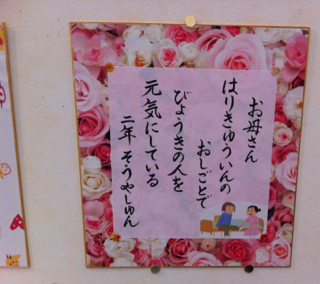 お母さん
はりきゅういんの
おしごとで
びょうきの人を
元気にしている
二年 そうやしゅん